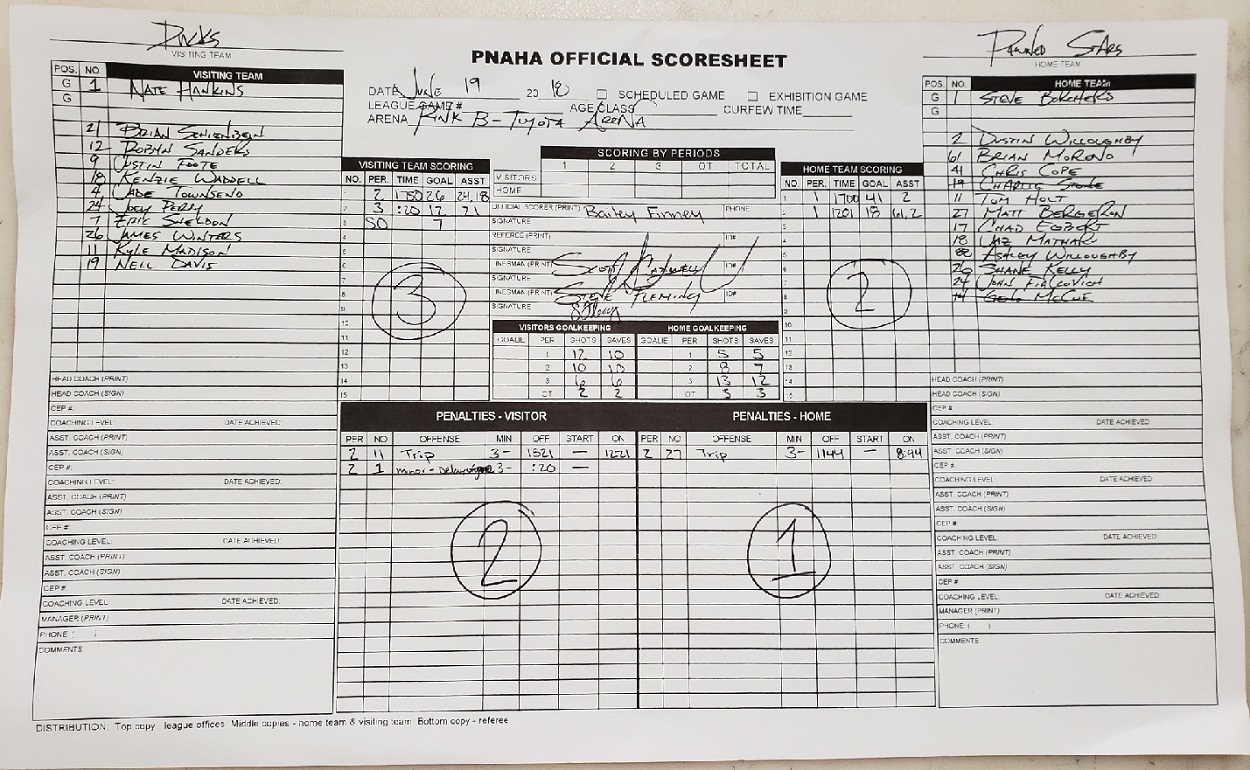 PNAHA OFFICIAL SCORESHEET
VISITING TEAM
Pawned Stars
HOME TEAM
DATE June 19 20 18 SCHEDULED GAME EXHIBITION GAME
LEAGUE GAME # AGE CLASS CURFEW TIME
ARENA RINK B - TOYOTA ARENA
POS. NO. VISITING TEAM
G 1 NATE HANKINS
G
21 BRIAN
12 ROBYN SANDERS
9 JUSTIN FOOTE
18 KENZIE WADDELL
4 JADE TOWNSEND
24 PERRY
7 ERIC SHELDON
26 JAMES WINTERS
11 KYLE MADISON
19 NEIL DAVIS
VISITING TEAM SCORING
NO. PER. TIME GOAL ASST
1 2 1750 26 24,18
2 3 :20 12 7,1
3 SO 7
3
SCORING BY PERIODS
1 2 3 OT TOTAL
VISITORS
HOME
OFFICIAL SCORER (PRINT) Bailey Finney PHONE
SIGNATURE
REFEREE (PRINT) ID#
SIGNATURE
LINESMAN (PRINT) Scott ID#
SIGNATURE
LINESMAN (PRINT) STEVE FLEMING ID#
SIGNATURE
VISITORS GOALKEEPING
GOALIE PER SHOTS SAVES
1 12 10
2 10 10
3 6 6
OT 2 2
HOME GOALKEEPING
GOALIE PER SHOTS SAVES
1 5 5
2 8 7
3 13 12
OT 3 3
HOME TEAM SCORING
NO. PER. TIME GOAL ASST
1 1 1700 41 2
2 1 1201 18 61,2
2
POS. NO. HOME TEAM
G 1 STEVE BORCHERS
G
2 DUSTIN WILLOUGHBY
61 BRIAN MORENO
41 CHRIS COPE
19 CHARLIE
11 TOM HOLT
27 MATT BERGERON
17 CHAD EGBERT
18
88 ASHLEY WILLOUGHBY
26 SHANE KELLY
24 JOHN
14 McCUE
HEAD COACH (PRINT)
HEAD COACH (SIGN)
CEP #:
COACHING LEVEL: DATE ACHIEVED:
ASST. COACH (PRINT)
ASST. COACH (SIGN)
CEP #:
COACHING LEVEL: DATE ACHIEVED:
ASST. COACH (PRINT)
ASST. COACH (SIGN)
CEP #
COACHING LEVEL: DATE ACHIEVED:
ASST. COACH (PRINT)
ASST. COACH (SIGN)
CEP #:
COACHING LEVEL: DATE ACHIEVED:
MANAGER (PRINT)
PHONE: ( )
COMMENTS:
PENALTIES - VISITOR
PER NO OFFENSE MIN OFF START ON
2 11 Trip 3- 1321 — 1221
2 1 minor - 3- :20 —
2
PENALTIES - HOME
PER NO OFFENSE MIN OFF START ON
2 27 Trip 3- 1144 — 8:44
1
HEAD COACH (PRINT)
HEAD COACH (SIGN)
CEP #
COACHING LEVEL: DATE ACHIEVED:
ASST. COACH (PRINT)
ASST. COACH (SIGN)
CEP #:
COACHING LEVEL: DATE ACHIEVED:
ASST. COACH (PRINT)
ASST. COACH (SIGN)
CEP #
COACHING LEVEL: DATE ACHIEVED:
ASST. COACH (PRINT)
ASST. COACH (SIGN)
CEP #
COACHING LEVEL: DATE ACHIEVED:
MANAGER (PRINT)
PHONE: ( )
COMMENTS:
DISTRIBUTION: Top copy - league offices Middle copies - home team & visiting team Bottom copy - referee